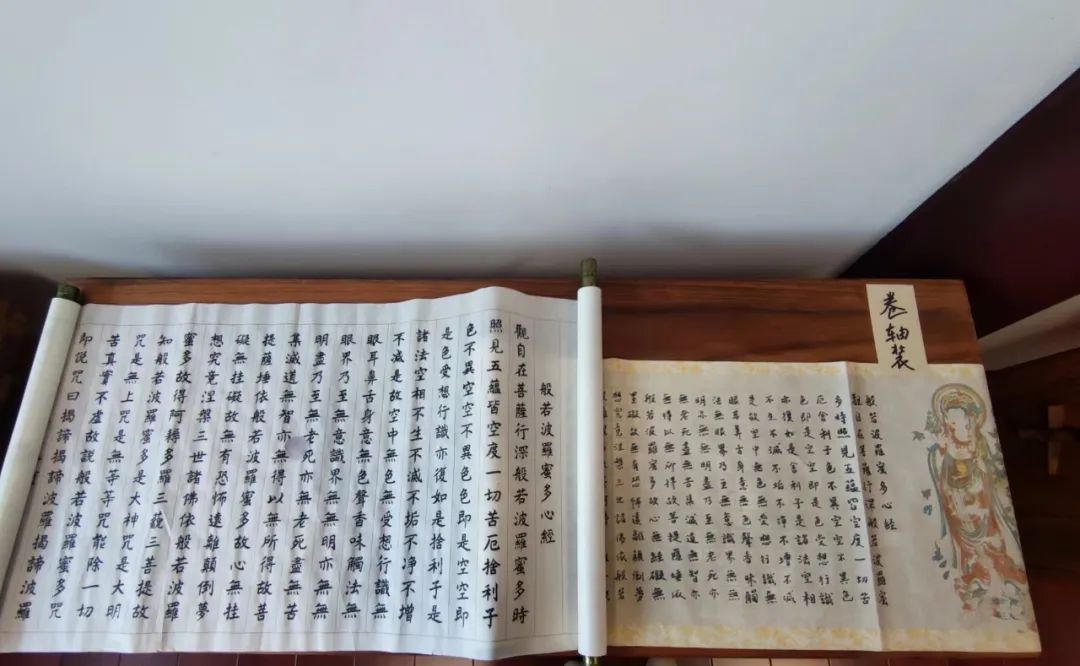 卷轴装
般若波羅蜜多心經
觀自在菩薩行深般若波羅蜜
多時照見五蘊皆空度一切苦
厄舍利子色不異空空不異色
色即是空空即是色受想行識
亦復如是舍利子是諸法空相
不生不滅不垢不淨不增不減
是故空中無色無受想行識無
眼耳鼻舌身意無色聲香味觸
法無眼界乃至無意識界無無
明亦無無明盡乃至無老死亦
無老死盡無苦集滅道無智亦
無得以無所得故菩提薩埵依
般若波羅蜜多故心無罣礙無
罣礙故無有恐怖遠離顛倒夢
想究竟涅槃三世諸佛依般若
般若波羅蜜多心經
觀自在菩薩行深般若波羅蜜多時
照見五蘊皆空度一切苦厄捨利子
色不異空空不異色色即是空空即
是色受想行識亦復如是捨利子是
諸法空相不生不滅不垢不净不增
不减是故空中無色無受想行識無
眼耳鼻舌身意無色聲香味觸法無
眼界乃至無意識界無無明亦無無
明盡乃至無老死亦無老死盡無苦
集滅道無智亦無得以無所得故菩
提薩埵依般若波羅蜜多故心無挂
礙無挂礙故無有恐怖遠離顛倒夢
想究竟涅槃三世諸佛依般若波羅
蜜多故得阿耨多羅三藐三菩提故
知般若波羅蜜多是大神咒是大明
咒是無上咒是無等等咒能除一切
苦真實不虚故説般若波羅蜜多咒
即説咒曰揭諦揭諦波羅揭諦波羅